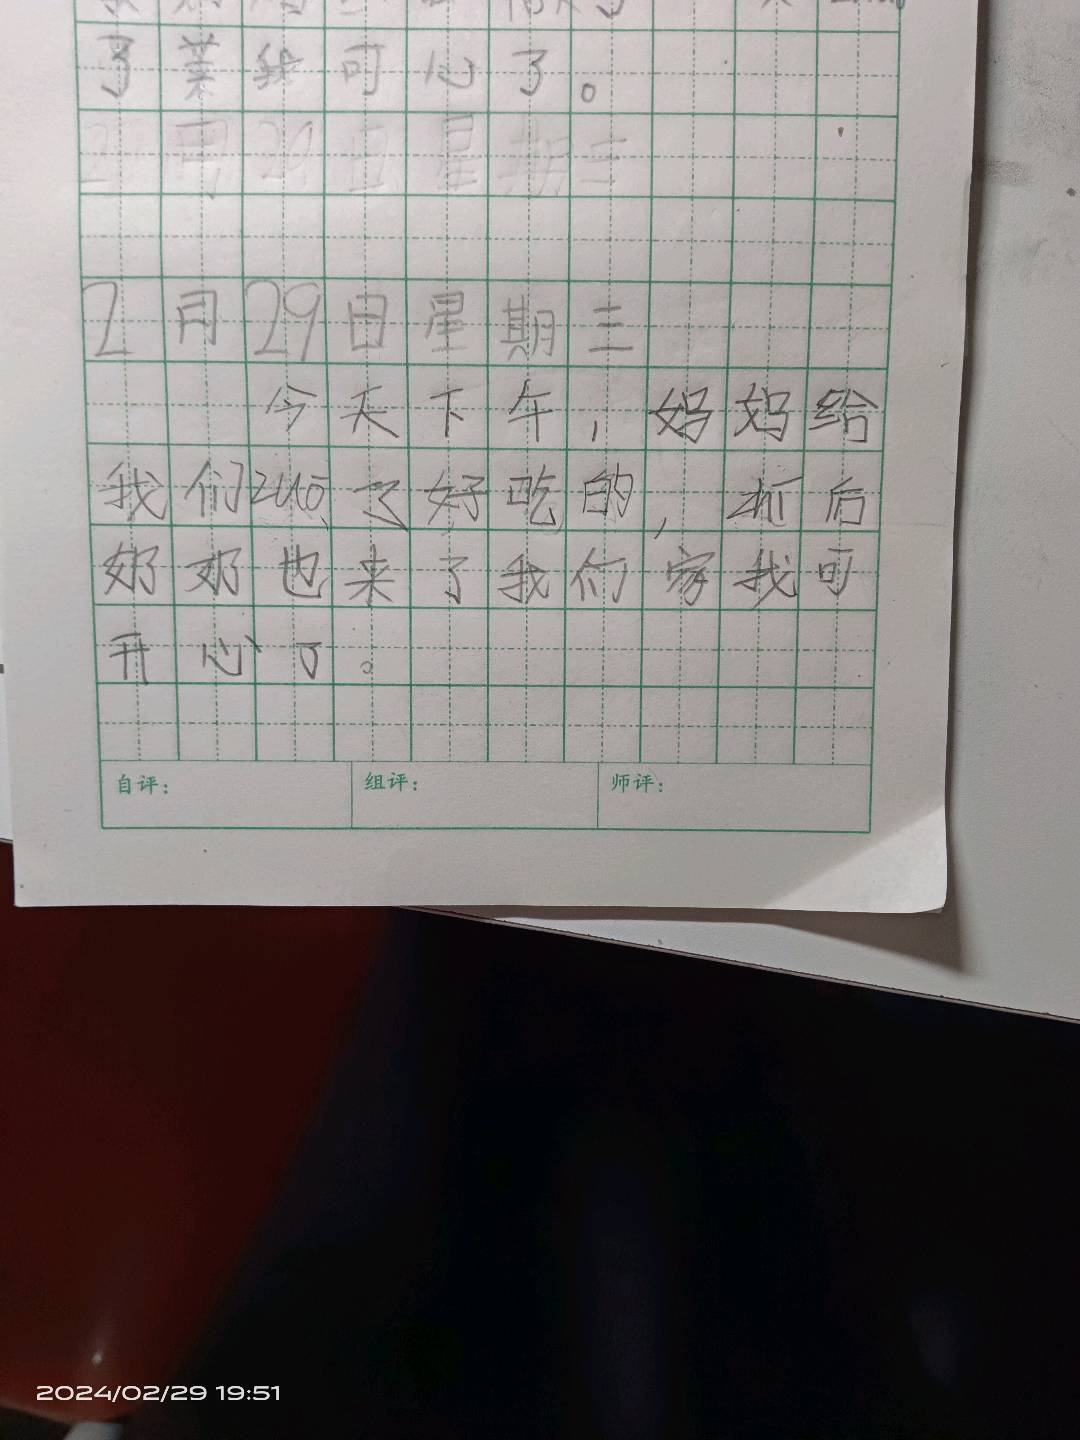 了菜我可心了。
2月29日星期三
2月29日星期三
今天下午，妈妈给
我们zuo了好吃的，后
奶奶也来了我们家我可
开心了。
自评：
组评：
师评：
2024/02/29 19:51